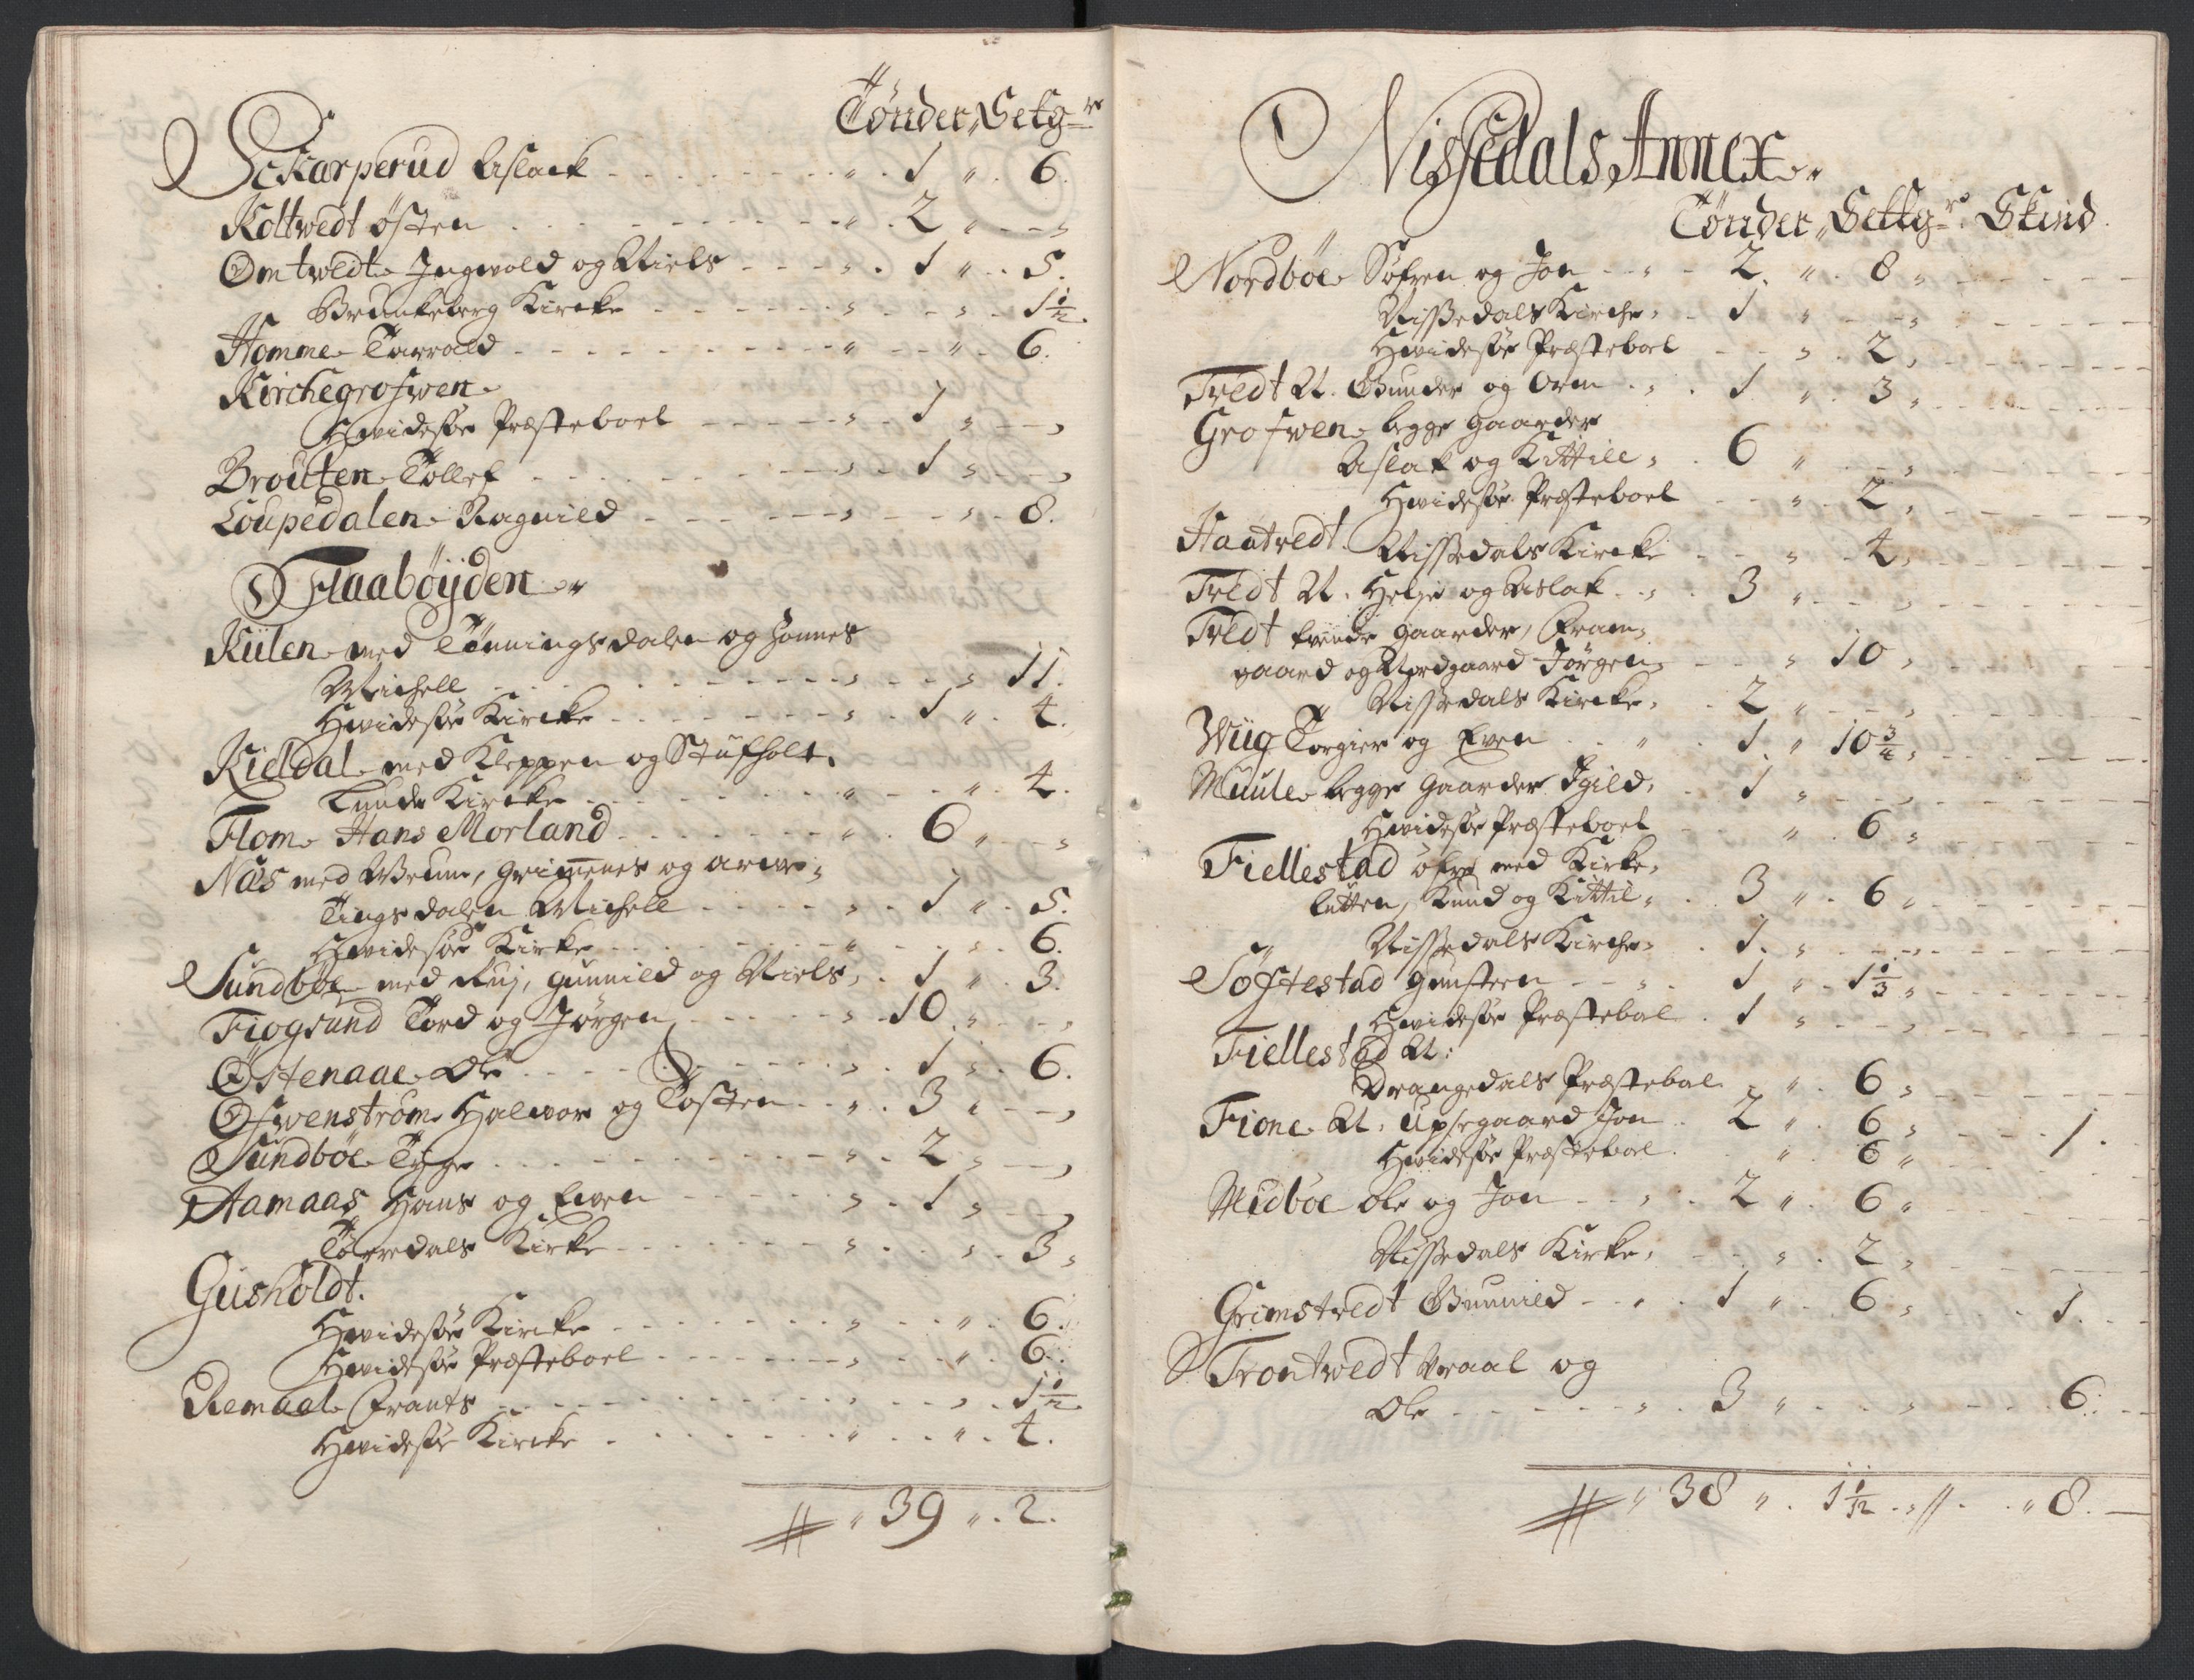 Tønder, Setg.r
Skarperud Aslack 1 6.
Koltwedt østen 2
Omtwedt Ingwold og Niels 1 5.
Brunkeberg Kircke 1 1/2.
Homme Tarrald 6.
Kirchegrofwen
Hwidesøe Præsteboel 1
Brouten Tollef 1
Loupedalen Ragnild 8.
Flaabøyden
Kiilen med Tønningsdalen og
Michell 11.
Hwidesøe Kircke 1 4.
Kieldal med Kleppen og Stufholt.
Lunde Kircke 4.
Flom Hans Morland 6
Nås med Weum, Grimenes og
Tingsdalen Michell 1 5.
Hwidesøe Kirke 6.
Sundbøe med Ruj, gunnild og Niels 1 3.
Fiogsund Tord og Jørgen 10
Østenaae Ole 1 6.
Ofwenstrøm Halwor og Tosten 3
Sundbøe Tyge 2
Aamaas Hans og Ewen 1
Tørredals Kirke 3
Gusholdt.
Hwidesøe Kircke 6.
Hwidesøe Præsteboel 6.
Remaal Frants 1 1/2
Hwidesøe Kircke 4.
39 2.
Nissedals Annex
Tønder, Settg.r Skind.
Nordbøe Søfren og Jon 2. 8
Nissedals Kirche 1
Hwidesøe Præsteboel 2
Tvedt N. Gunder og Orm 1 3
Grofwen begge Gaarder
Aslak og Kittill 6
Hwidesøe Præsteboel 2
Hautvedt. Nissedals Kircke 4
Tvedt N. Helje og Aslak 3
Tvedt tvende gaarder, Fram-
gaard og Nordgaard Jørgen 10
Nissedals Kircke 2
Wiig Torgier og Even 1 10 3/4
Muule begge Gaarder Egild 1
Hwidesøe Præsteboel 6
Fiellestad øfre med Kirke-
lutten, Knud og Kittil 3 6
Nissedals Kirche 1
Softestad gunsteen 1 1 1/3
Hwidesøe Præstebol 1
Fiellestad N:
Drangedals Præstebol 6
Fione N. Upsegaard Jon 2 6 1.
Hwidesøe Præsteboel 6
Midbøe Ole og Jon 2 6
Nissedals Kirke 2
Grimstvedt Gunnild 1 6 1.
Trontvedt Wraal og
Ole 3 6.
38 1 1/12 8.